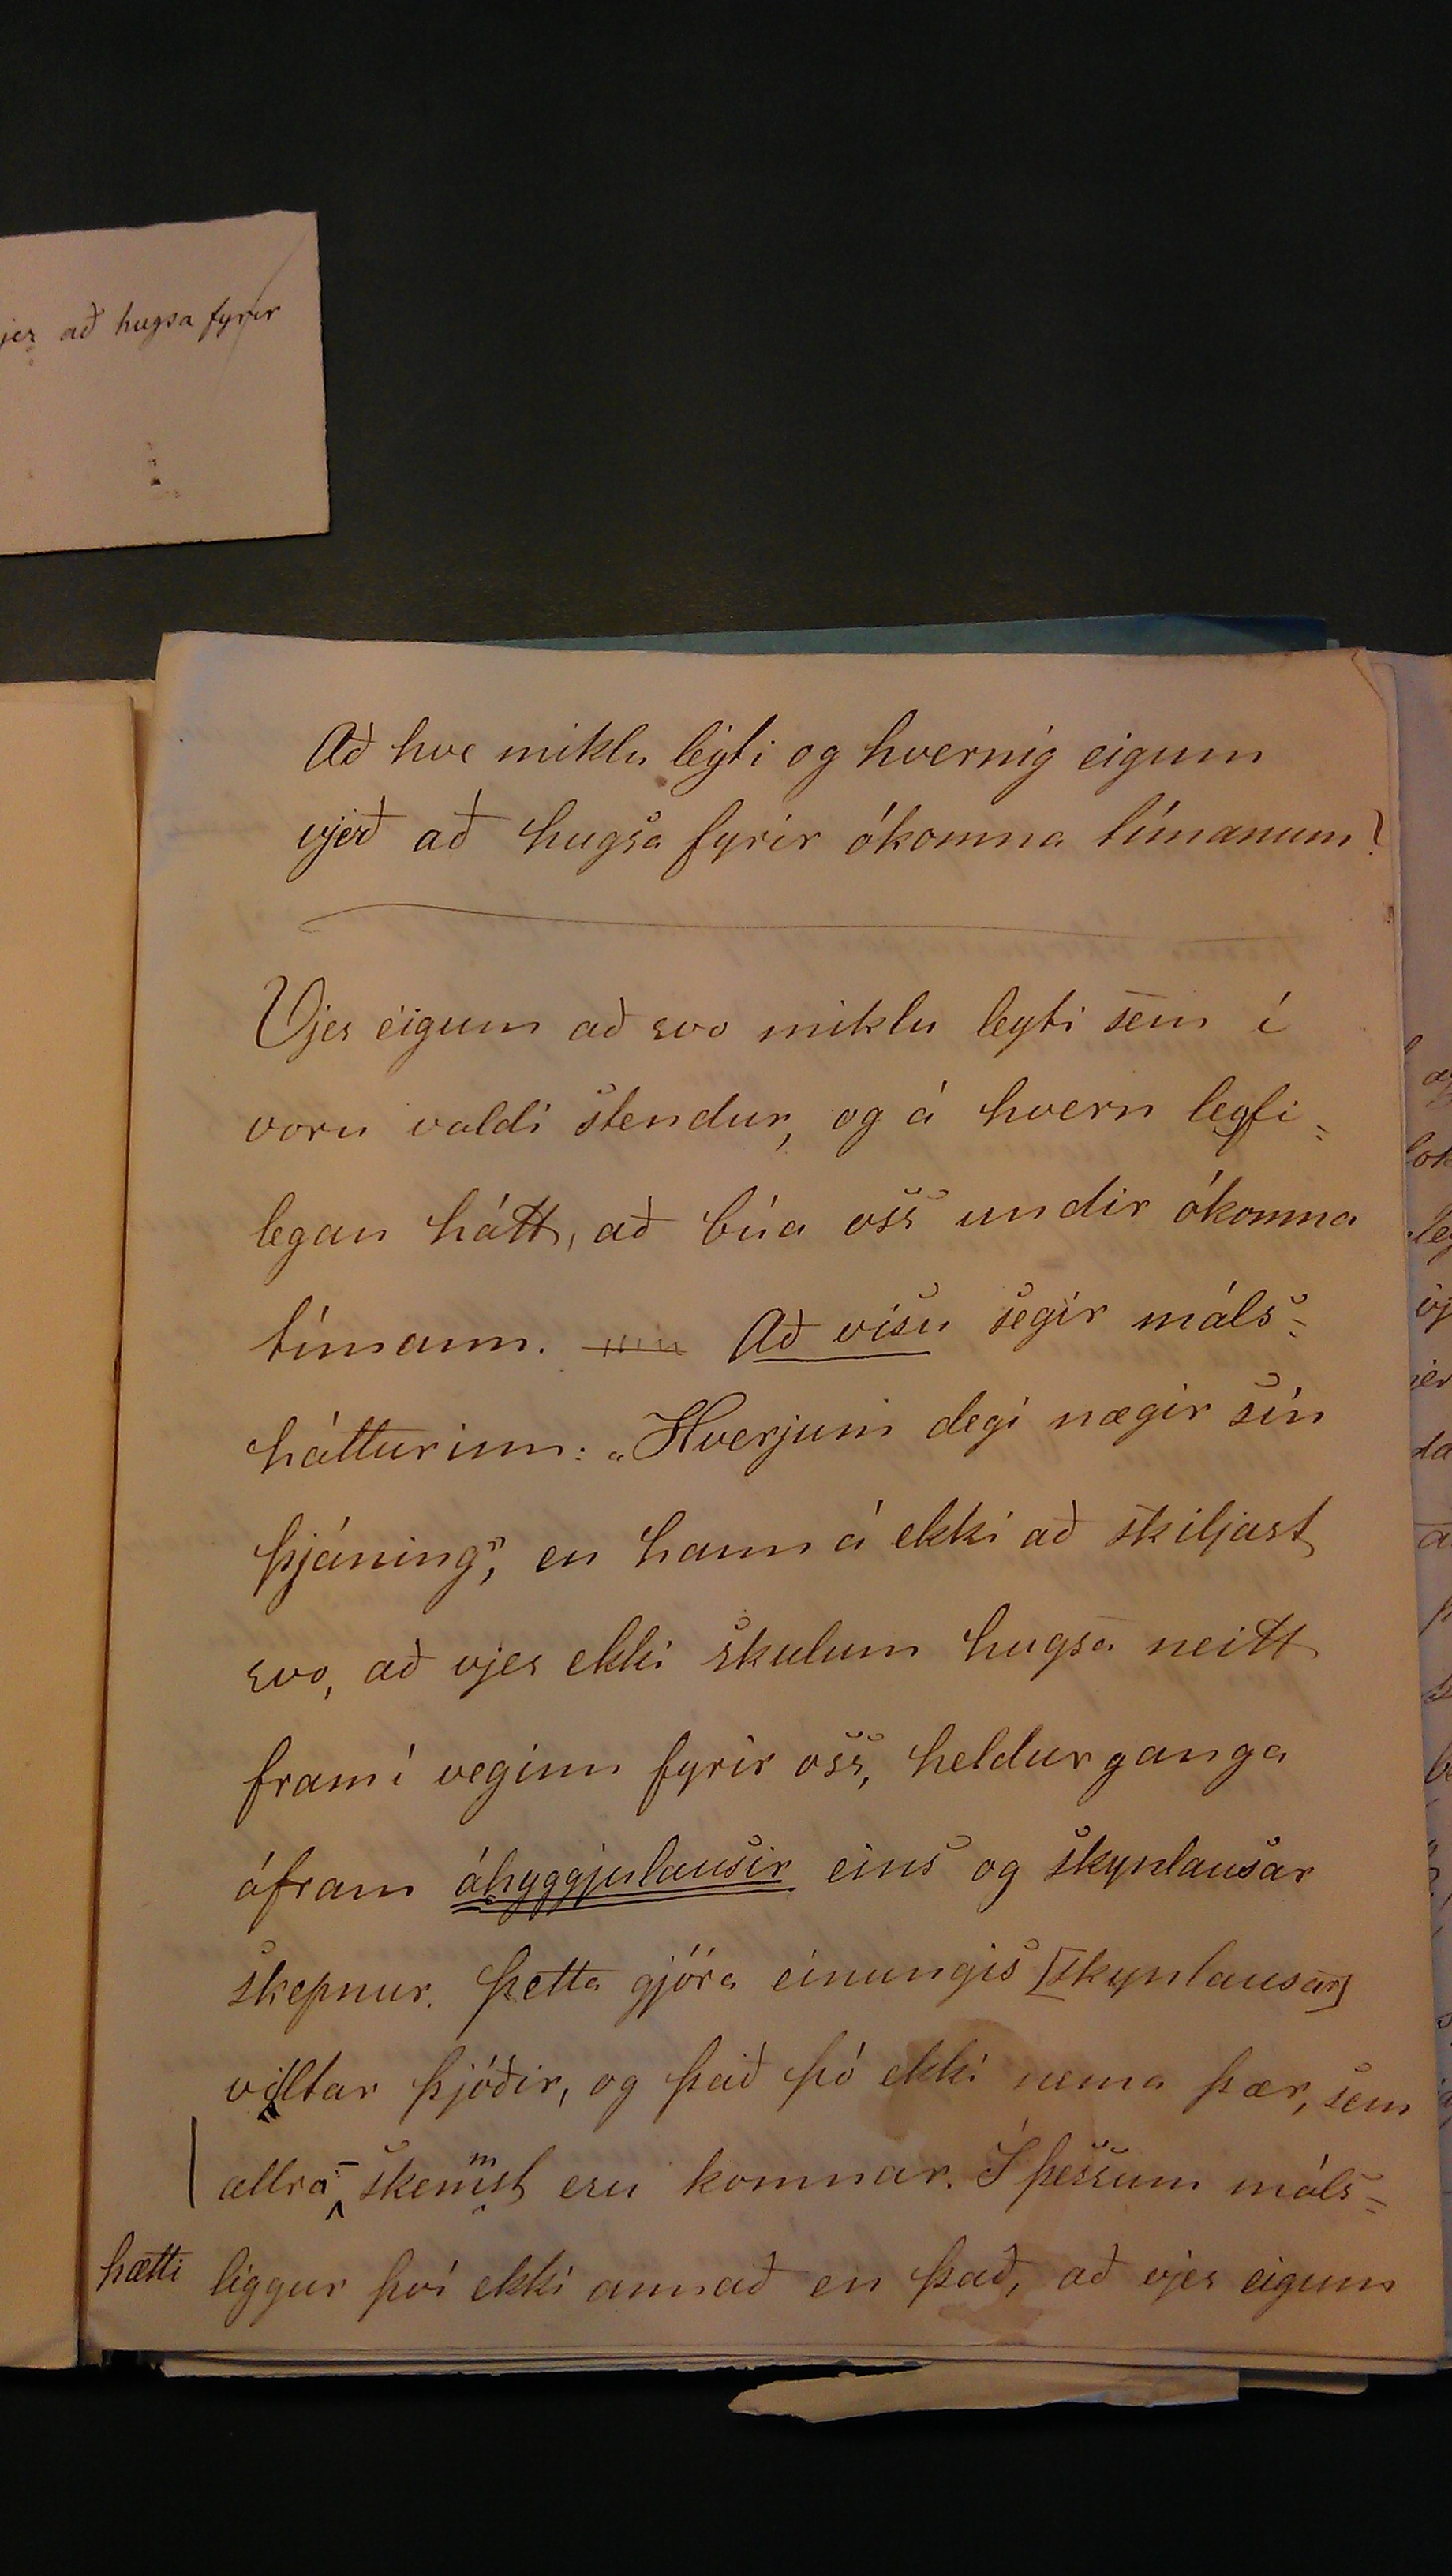 jer að hugsa fyrir
Að hve miklu leyti og hvernig eigum
vjer að hugsa fyrir ókomna tímanum?
Vjer eigum að svo miklu leyti sem í
voru valdi stendur, og á hvern leyfi=
legan hátt, að búa oss undir ókomna
tímann. Að vísu segir máls=
hátturinn: „Hverjum degi nægir sín
þjáning“, en hann á ekki að skiljast
svo, að vjer ekki skulum hugsa neitt
fram í veginn fyrir oss, heldur ganga
áfram áhyggjulausir eins og skynlausar
skepnur. Þetta gjöra einungis [skynlausar]
villtar þjóðir, og það þó ekki nema þær, sem
allra- skemmst eru komnar. Í þessum máls=
hætti liggur því ekki annað en það, að vjer eigum